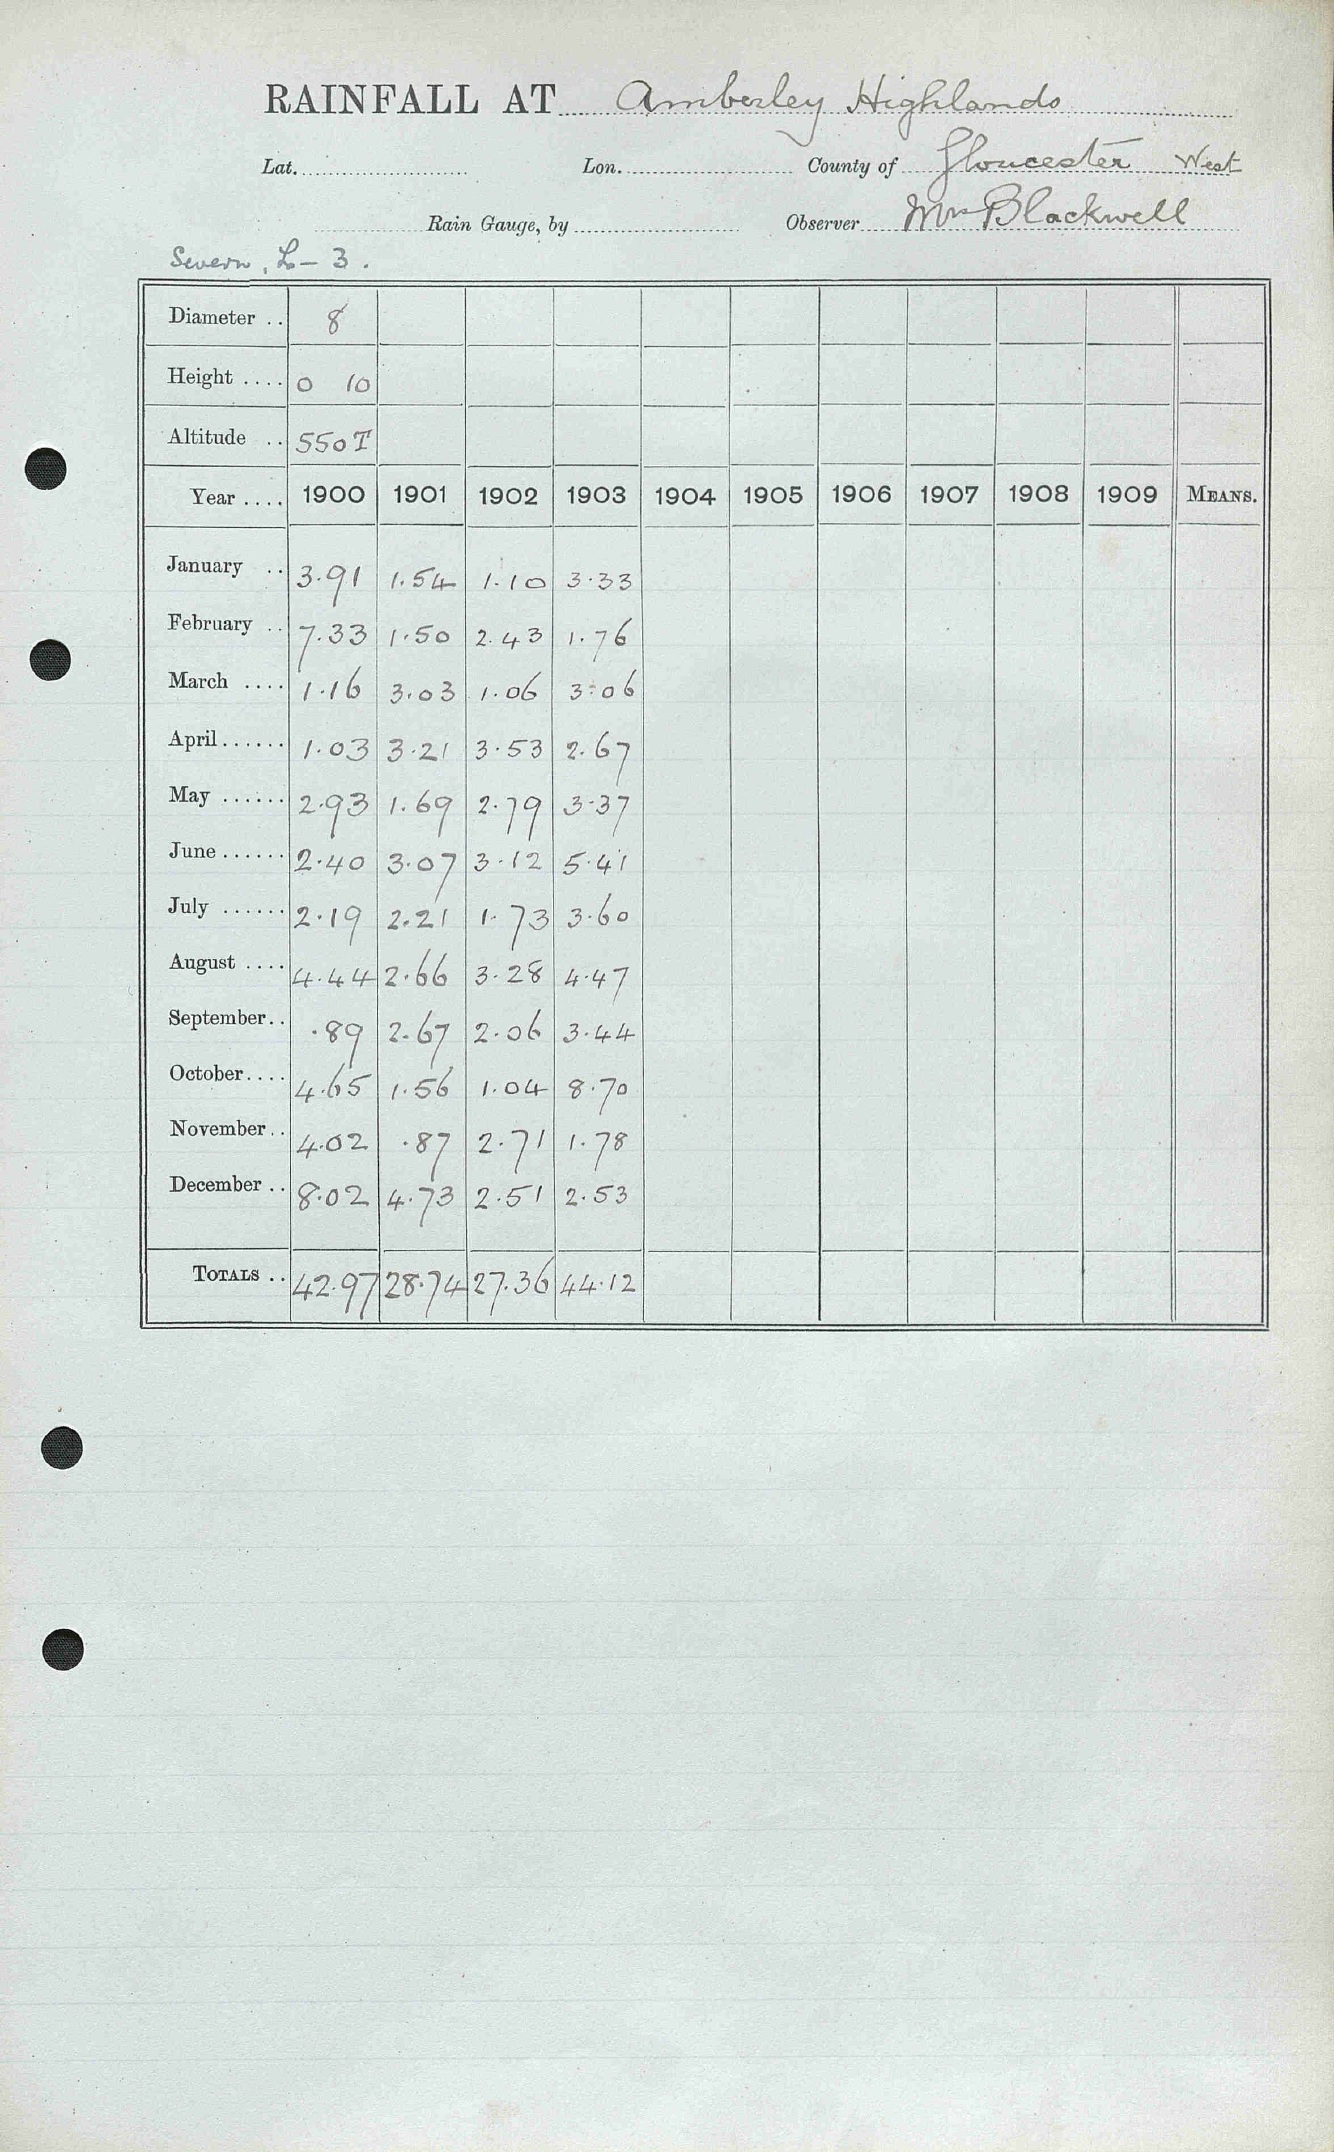 RAINFALL AT Amberley Highlands
Lat. Lon. County of Gloucester West
Rain Gauge, by Observer Mrs Blackwell
Severn, L - 3.
Diameter .. 8
Height .... 0 10
Altitude .. 550 T
Year .... 1900 1901 1902 1903 1904 1905 1906 1907 1908 1909 MEANS.
January .. 3.91 1.54 1.10 3.33
February .. 7.33 1.50 2.43 1.76
March .... 1.16 3.03 1.06 3.06
April ...... 1.03 3.21 3.53 2.67
May ...... 2.93 1.69 2.79 3.37
June ...... 2.40 3.07 3.12 5.41
July ...... 2.19 2.21 1.73 3.60
August .... 4.44 2.66 3.28 4.47
September.. .89 2.67 2.06 3.44
October.... 4.65 1.56 1.04 8.70
November.. 4.02 .87 2.71 1.78
December .. 8.02 4.73 2.51 2.53
TOTALS .. 42.97 28.74 27.36 44.12